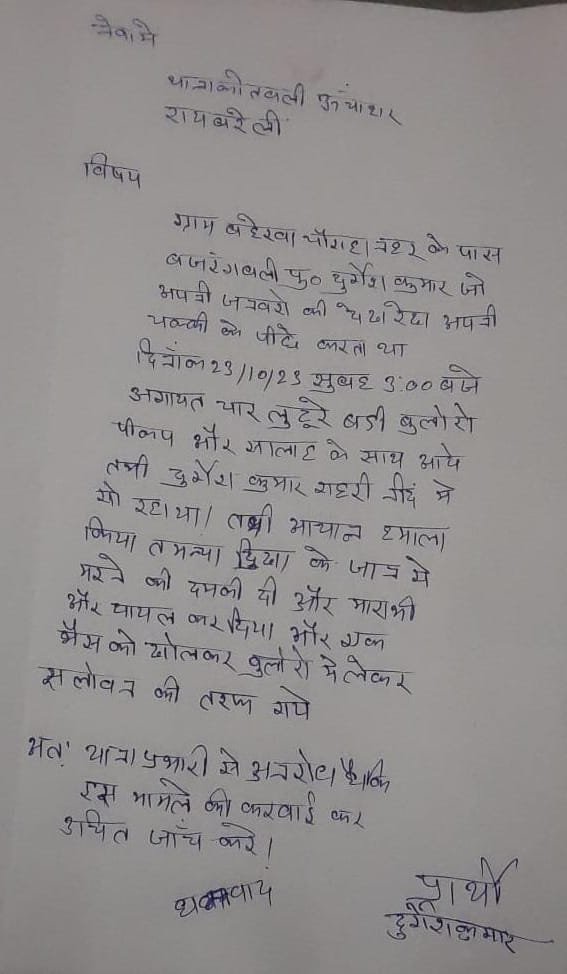 सेवामे
थानाकोतवली ऊंचाहार
रायबरेली
विषय
ग्राम बहेरवा चौराहा नहर के पास
बजरंगबली पु० दुर्गेश कुमार जो
अपनी जनवरो की देखरेख अपनी
चक्की के पीछे करता था
दिनाँक 23/10/23 सुबह 3:00 बजे
अगायत चार लुटूरे बडी बुलोरो
पीकप और सालाह के साथ आये
तभी दुर्गेश कुमार गहरी नीदं मे
सो रहाथा। तभी आचान हमाला
किया तमन्चा दिखा के जान से
मरने की दमकी दी और माराभी
और घायल कर दिया और एक
भैस को खोलकर बुलोरो मे लेकर
सलोवन की तरफ गये
अतः थाना प्रभारी से अनरोध है कि
इस मामले की करवाई कर
उचित जाँच करे।
धन्यवाद
प्रार्थी
दुर्गेशकुमार